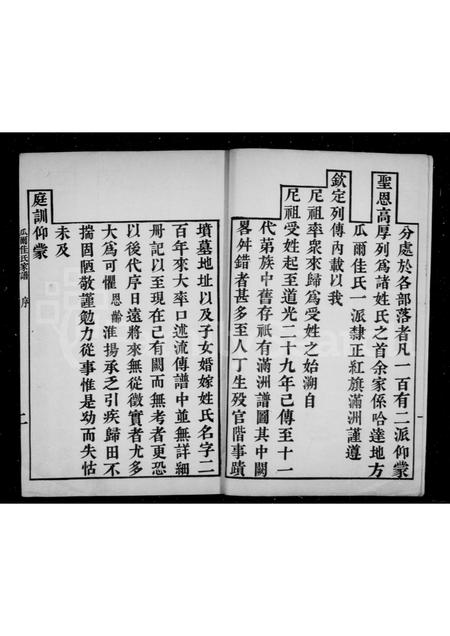 分處於各部落者凡一百有二派仰蒙
聖恩高厚列為諸姓氏之首余家係哈達地方
瓜爾佳氏一派隸正紅旗滿洲謹遵
欽定列傳內載以我
尼祖率衆來歸為受姓之始溯自
尼祖受姓起至道光二十九年已傳至十一
代第族中舊存祇有滿洲譜圖其中闕
畧舛錯者甚多至人丁生歿官階事蹟
墳墓地址以及子女婚嫁姓氏名字二
百年來大率口述流傳譜中並無詳細
冊記以至現在已有闕而無考者更恐
以後代序日遠將來無從徵實者尤多
大為可懼恩齡淮揚承乏引疾歸田不
揣固陋敬謹勉力從事惟是幼而失怙
未及
庭訓仰蒙
瓜爾佳氏家譜 序 二